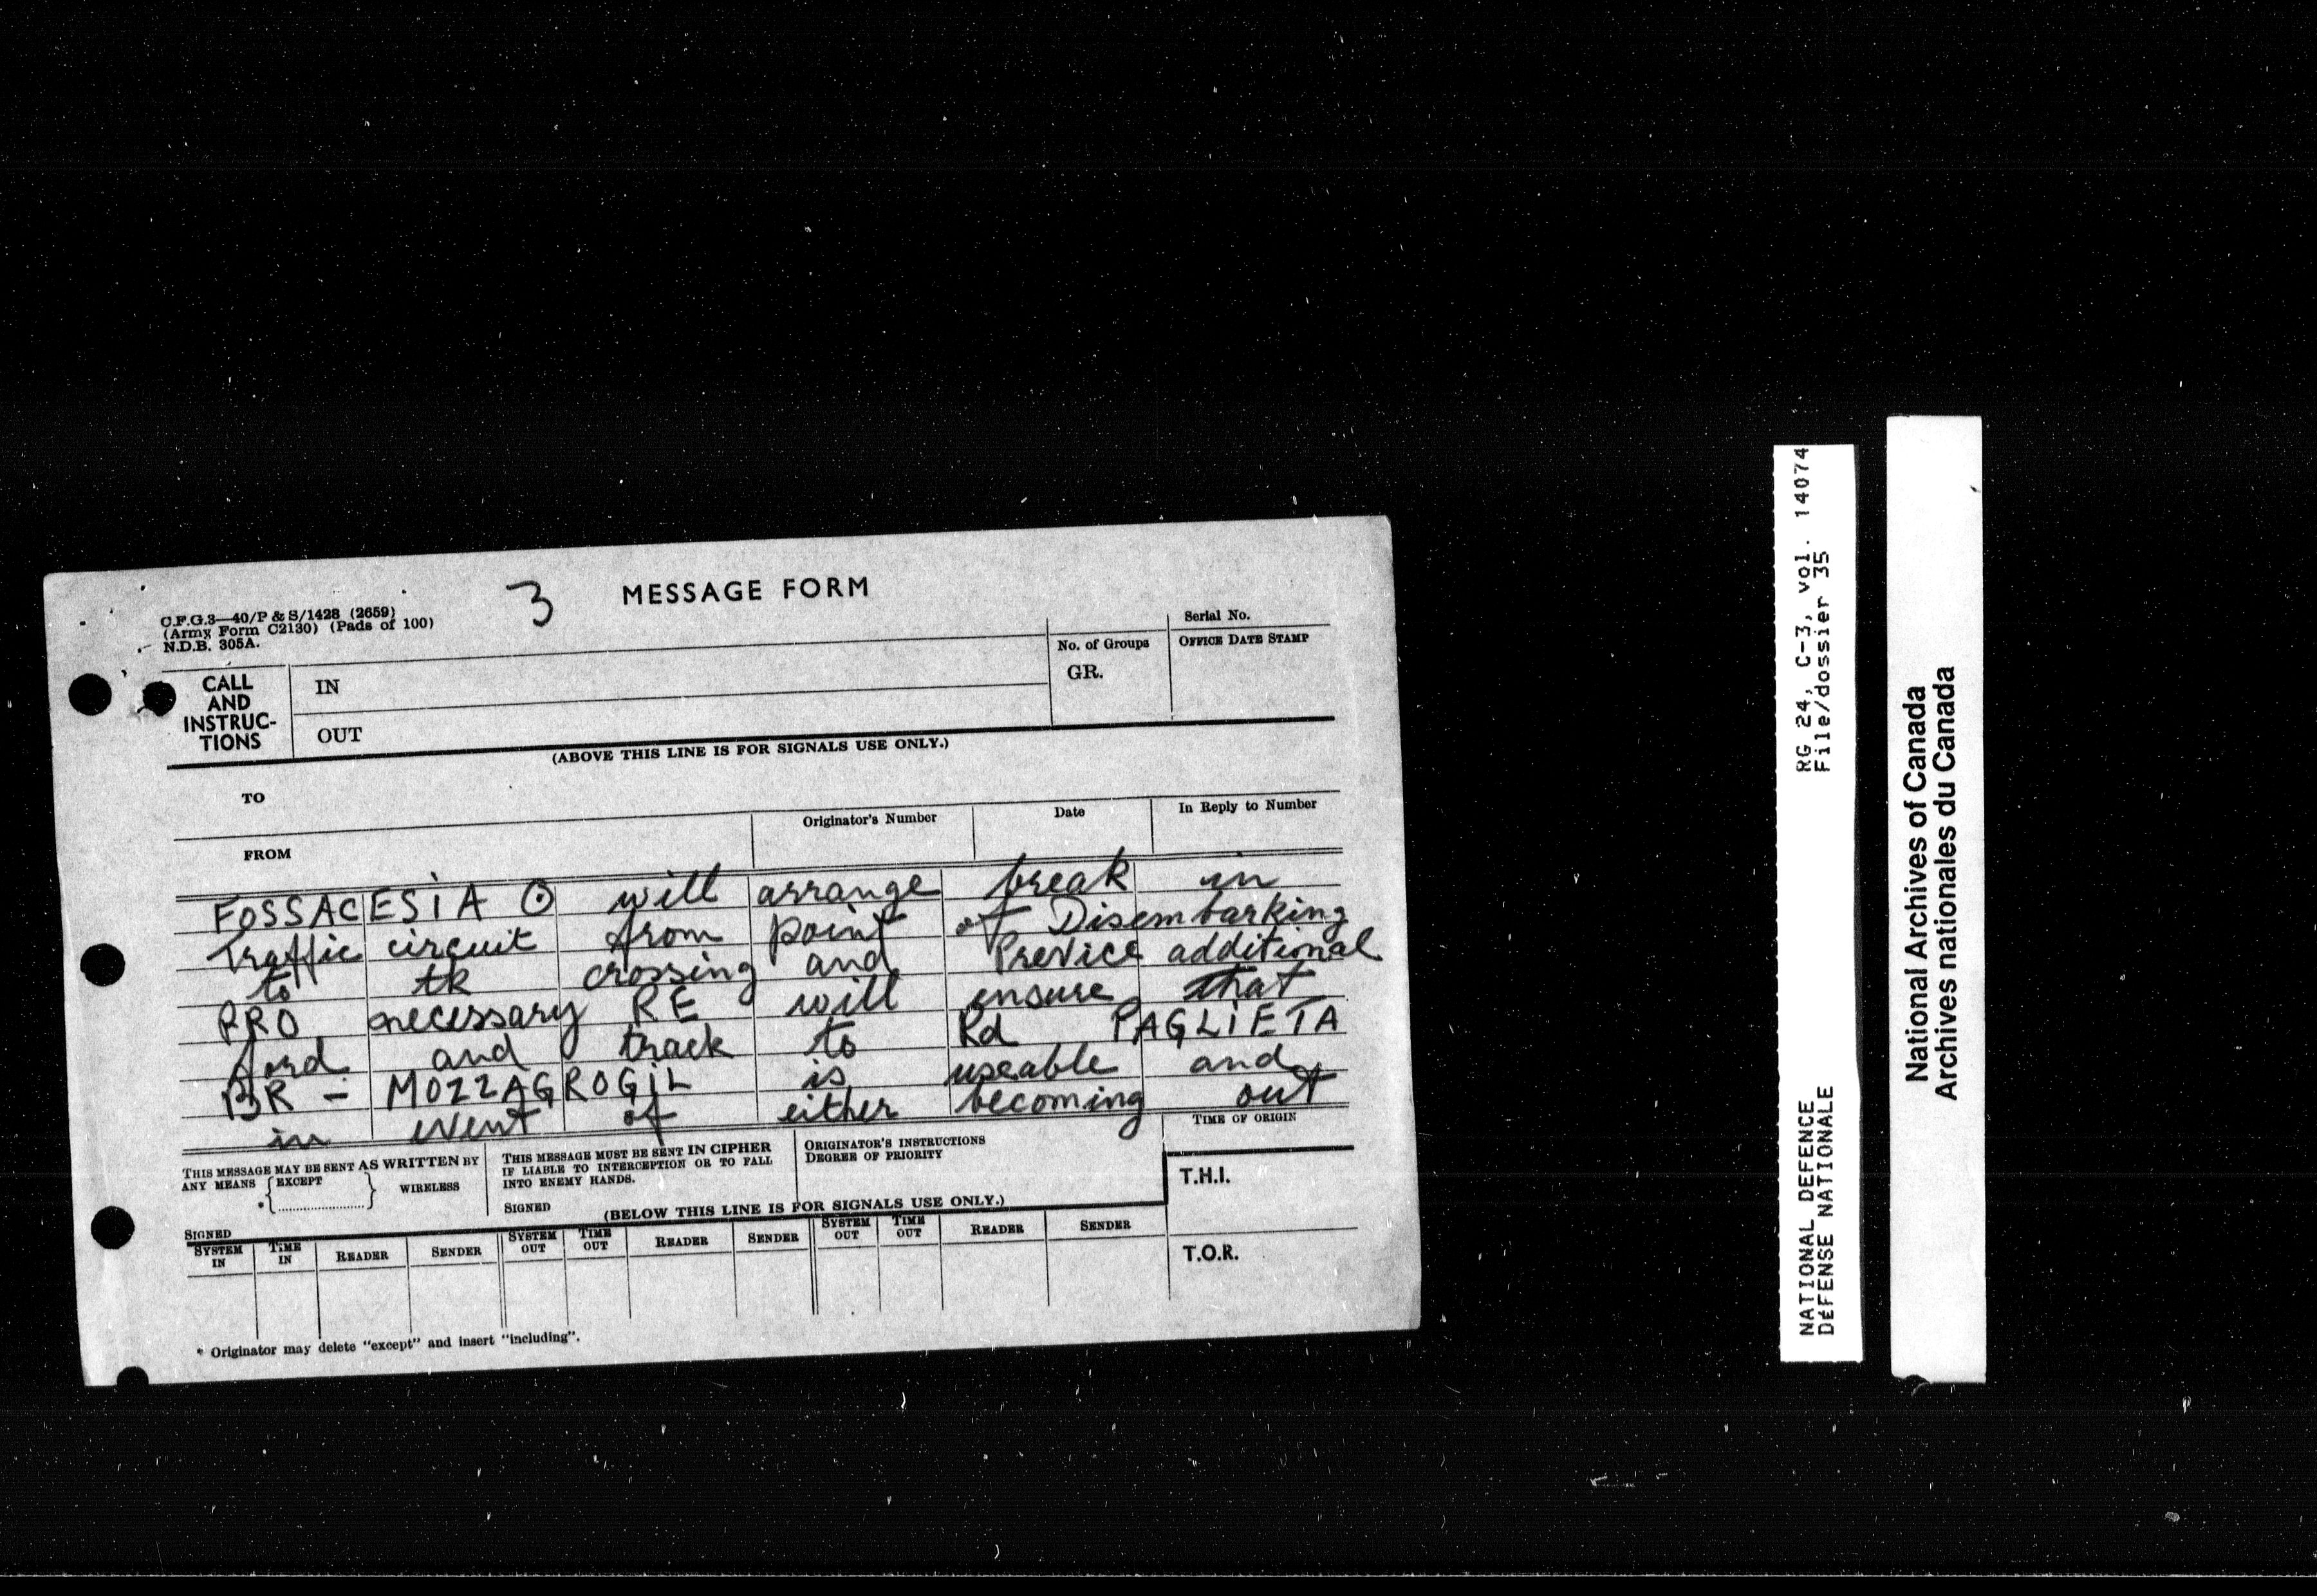 C.F.G.3—40/P & S/1428 (2659)
(Army Form C2130) (Pads of 100)
N.D.B. 305A.
3
MESSAGE FORM
Serial No.
CALL
AND
INSTRUC-
TIONS
IN
OUT
No. of Groups
GR.
OFFICE DATE STAMP
(ABOVE THIS LINE IS FOR SIGNALS USE ONLY.)
TO
FROM
Originator's Number
Date
In Reply to Number
FOSSACESIA ⊙ will arrange break in
Traffic circuit from point of Disembarking
to tk crossing and additional
PRO necessary RE will ensure that
ford and track to Rd PAGLIETA
BR – MOZZAGROGIL is useable and
in event of either becoming out
THIS MESSAGE MAY BE SENT AS WRITTEN BY
ANY MEANS
EXCEPT
*{....................}
WIRELESS
SIGNED
THIS MESSAGE MUST BE SENT IN CIPHER
IF LIABLE TO INTERCEPTION OR TO FALL
INTO ENEMY HANDS.
SIGNED
ORIGINATOR'S INSTRUCTIONS
DEGREE OF PRIORITY
TIME OF ORIGIN
T.H.I.
T.O.R.
(BELOW THIS LINE IS FOR SIGNALS USE ONLY.)
SYSTEM IN TIME IN READER SENDER SYSTEM OUT TIME OUT READER SENDER SYSTEM OUT TIME OUT READER SENDER
* Originator may delete "except" and insert "including".
NATIONAL DEFENCE RG 24, C-3, vol. 14074
DÉFENSE NATIONALE File/dossier 35
National Archives of Canada
Archives nationales du Canada